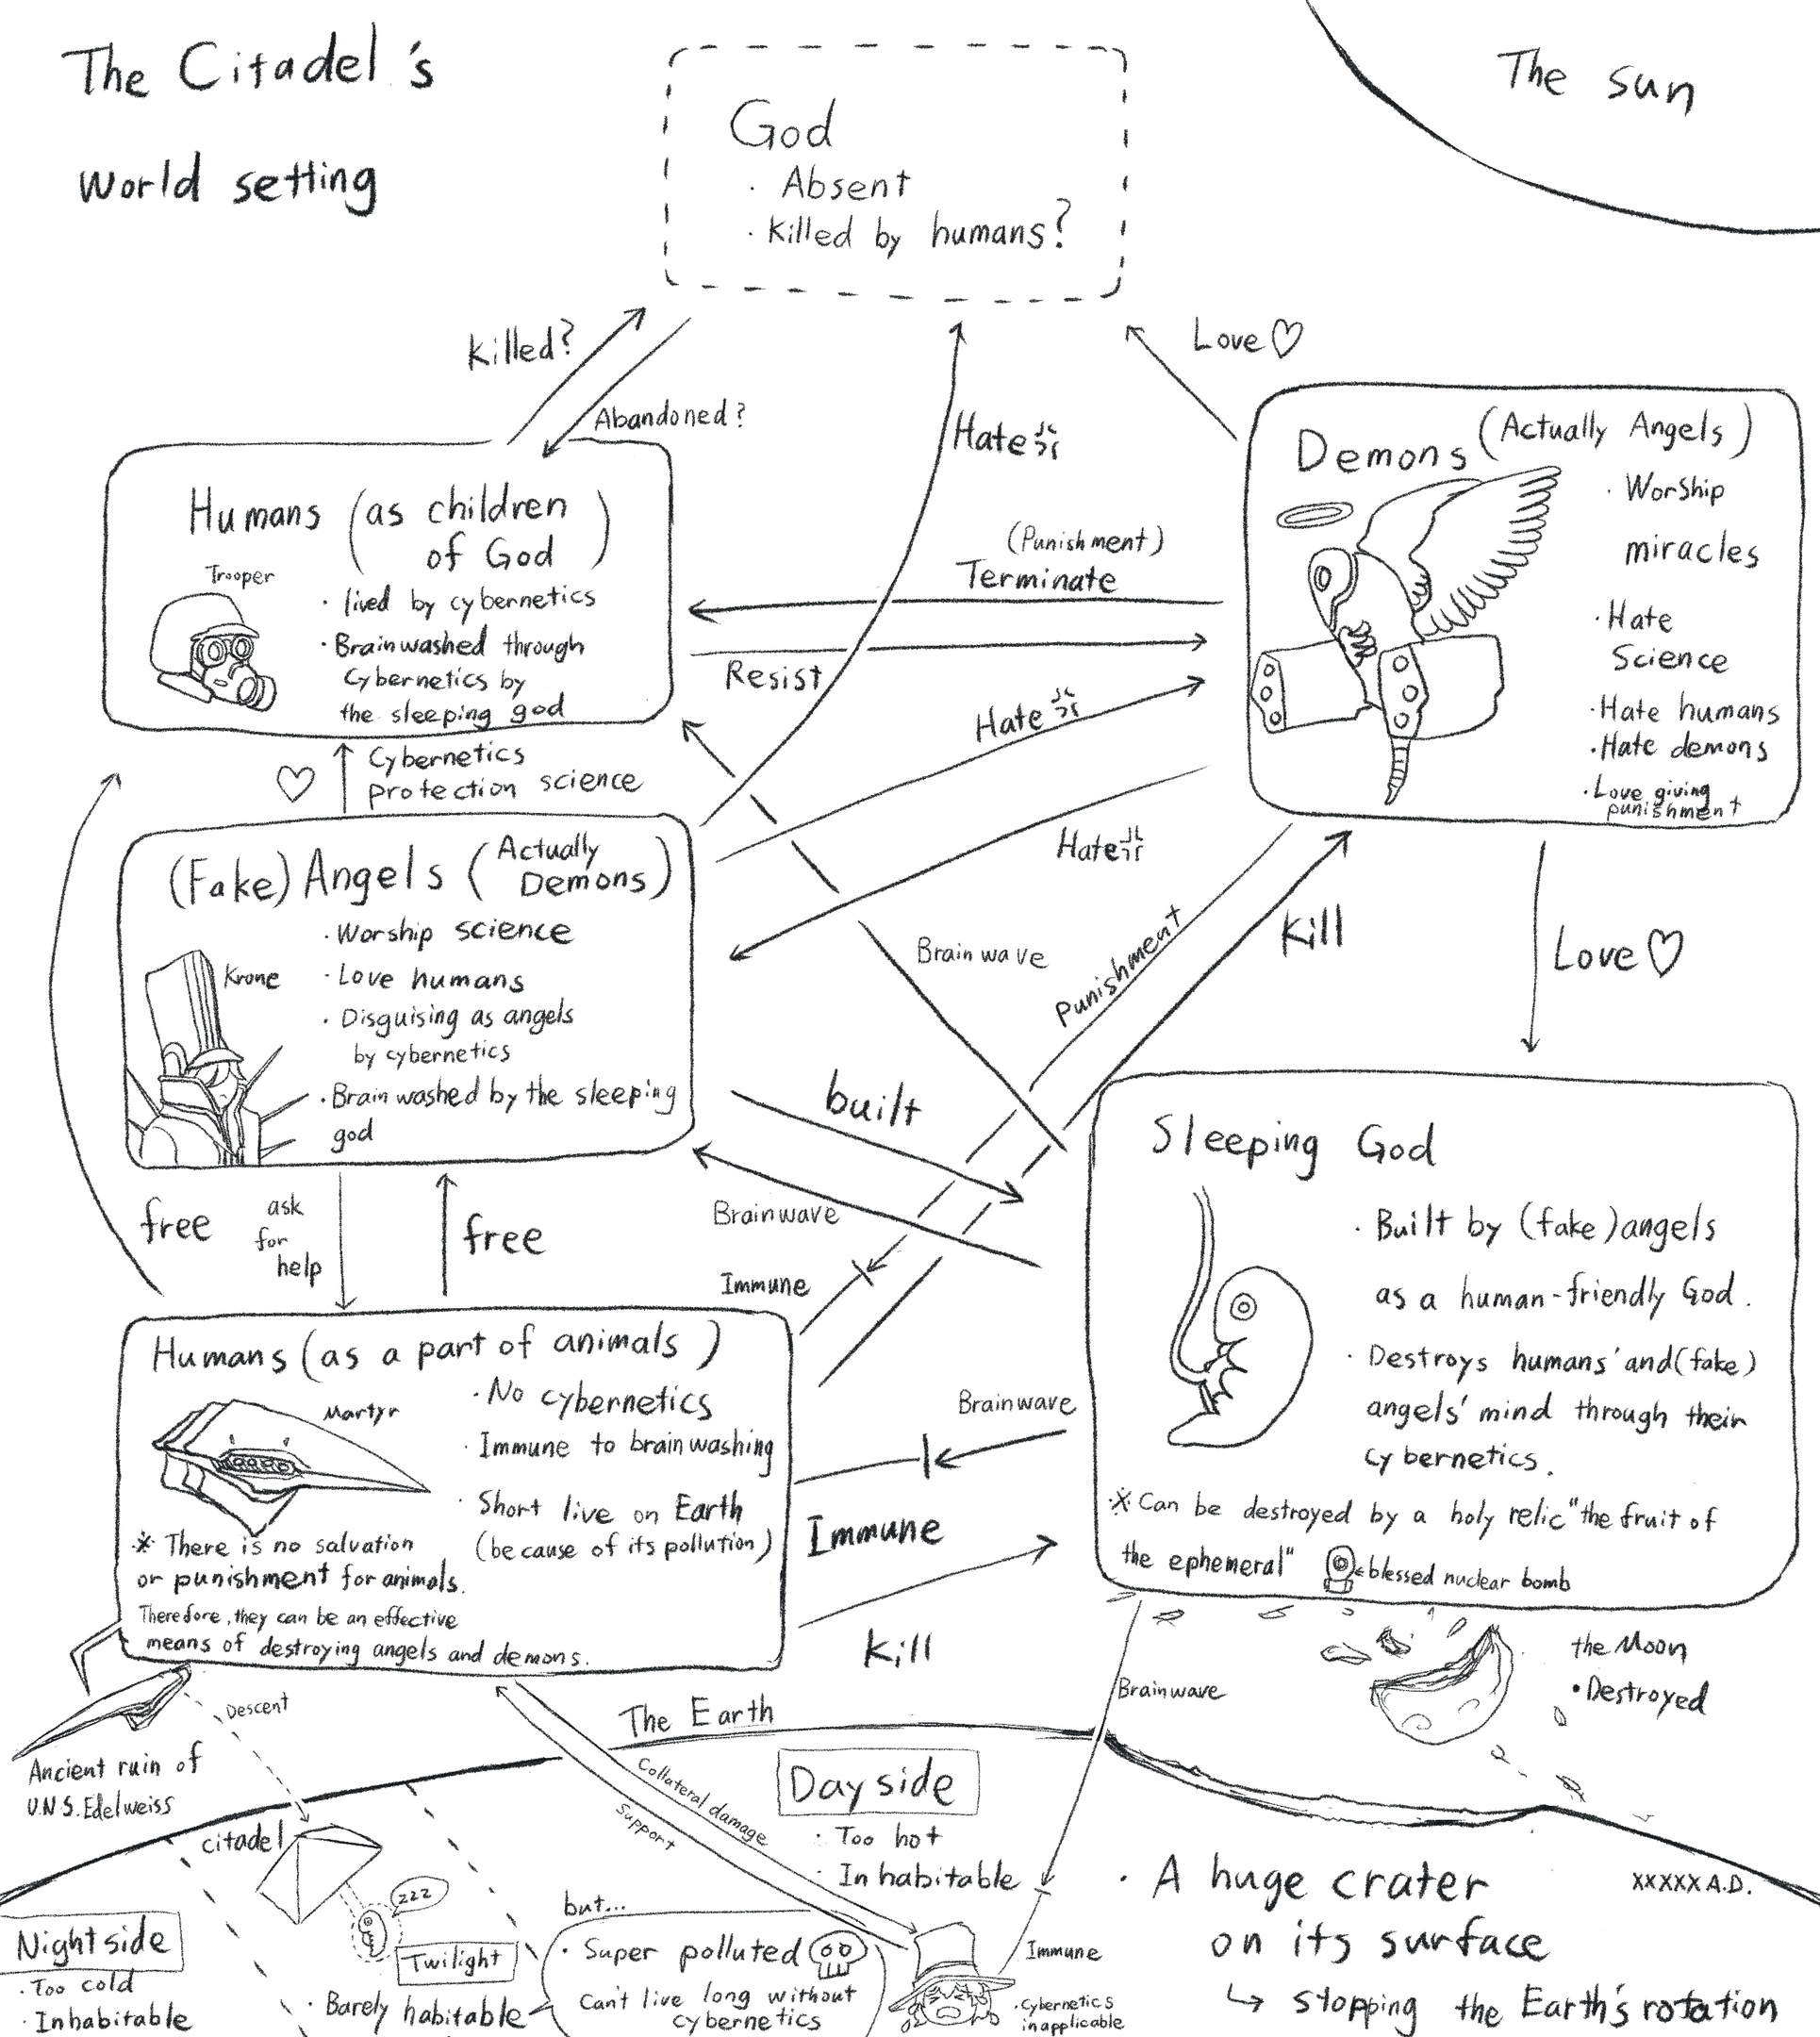 The Citadel's
world setting
The sun
God
· Absent
· Killed by humans?
Killed?
Abandoned?
Love♡
Hate
Humans (as children
of God)
Trooper
· lived by cybernetics
· Brainwashed through
Cybernetics by
the sleeping god
(Punishment)
Terminate
Resist
Demons (Actually Angels)
· Worship
miracles
· Hate
Science
· Hate humans
· Hate demons
· Love giving
punishment
♡
Cybernetics
protection science
Hate
Hate
(Fake) Angels (Actually
Demons)
· Worship science
Krone
· Love humans
· Disguising as angels
by cybernetics
· Brainwashed by the sleeping
god
Brainwave
Punishment
Kill
Love♡
built
Brainwave
Immune
free
ask
for
help
free
Sleeping God
· Built by (fake) angels
as a human-friendly God.
· Destroys humans' and (fake)
angels' mind through their
cybernetics.
※ Can be destroyed by a holy relic "the fruit of
the ephemeral"
←blessed nuclear bomb
Humans (as a part of animals)
Martyr
· No cybernetics
· Immune to brainwashing
· Short live on Earth
(because of its pollution)
※ There is no salvation
or punishment for animals.
Therefore, they can be an effective
means of destroying angels and demons.
Brainwave
Immune
Kill
Brainwave
the Moon
· Destroyed
Descent
Ancient ruin of
U.N.S. Edelweiss
The Earth
Collateral damage
Support
Day side
· Too hot
· Inhabitable
citadel
zzz
Night side
· Too cold
· Inhabitable
Twilight
· Barely habitable
but...
· Super polluted
Can't live long without
cybernetics
Immune
· Cybernetics
inapplicable
· A huge crater
on its surface
↳ stopping the Earth's rotation
XXXXX A.D.